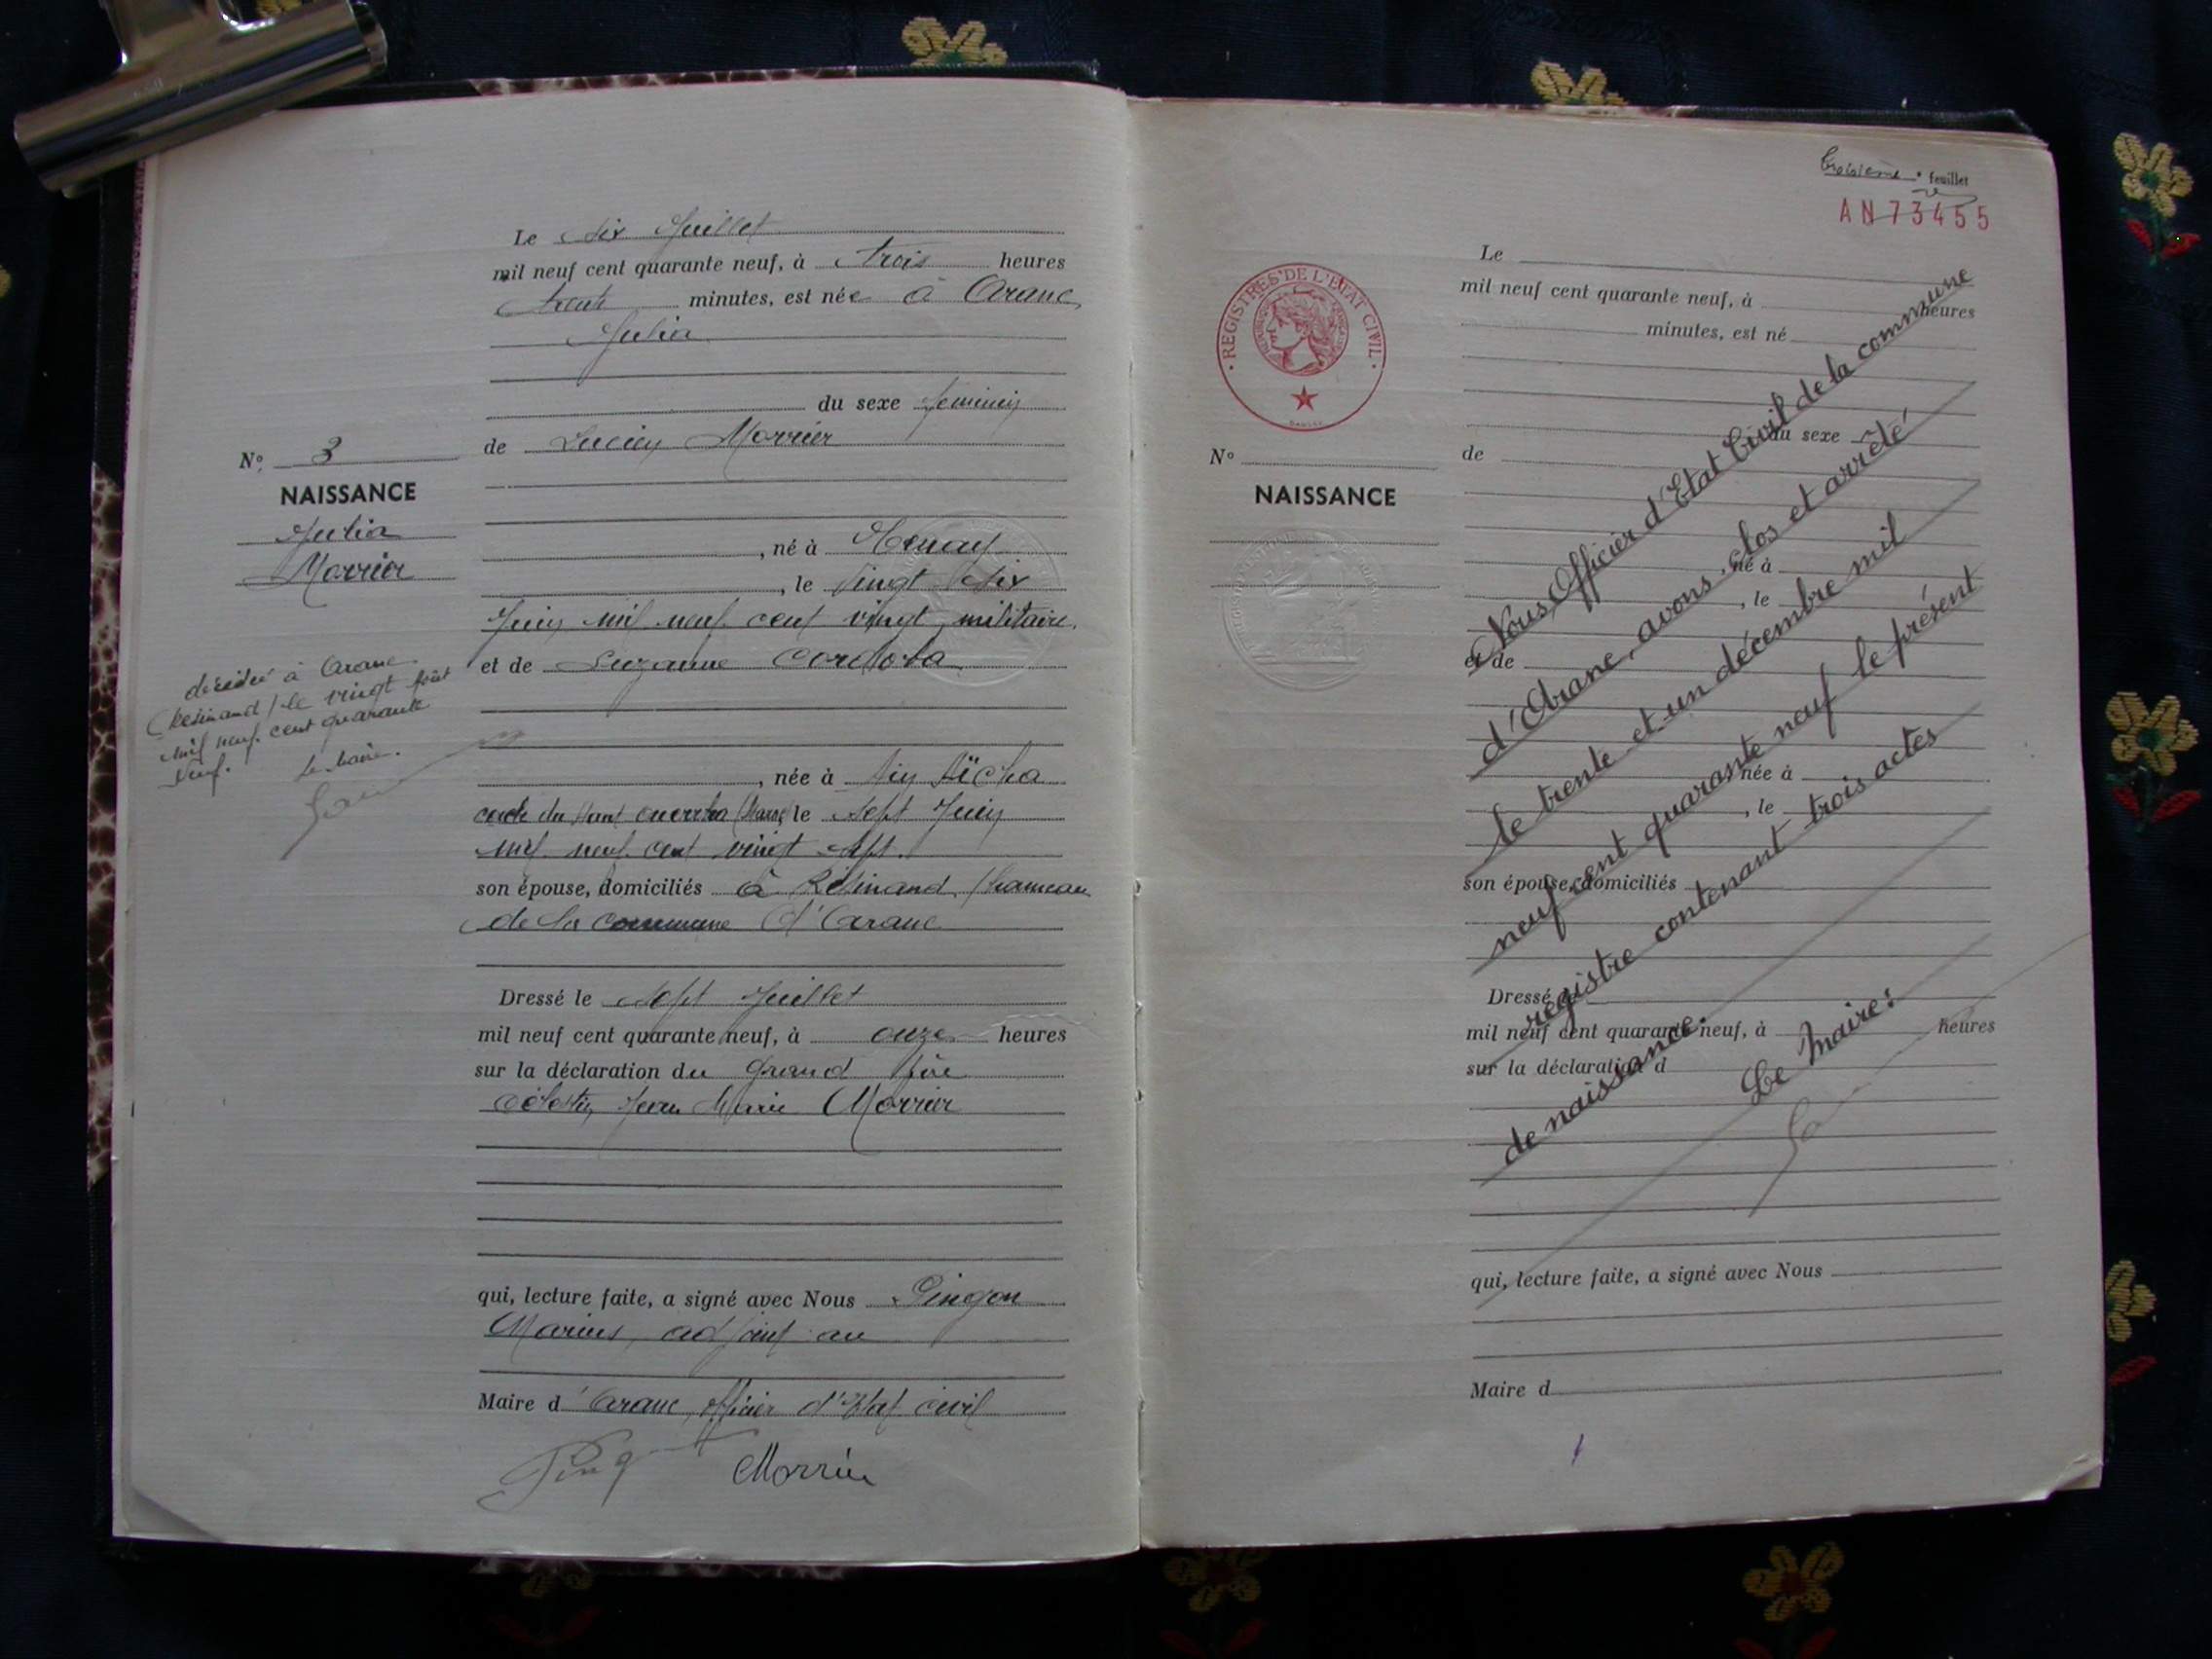 Le six Juillet
mil neuf cent quarante neuf, à trois heures
trente minutes, est née à Aranc
Julia
du sexe féminin
de Lucien Morrier
N° 3
NAISSANCE
Julia
Morrier
, né à
, le Vingt six
Juin mil neuf cent vingt, militaire,
et de Suzanne Cordoba
décédée à Aranc
(Résinand) le vingt Août
mil neuf cent quarante
neuf. Le Maire.
, née à Aïn Aïcha
cercle du Haut (Maroc) le sept Juin
mil neuf cent vingt sept.
son épouse, domiciliés à Résinand, hameau
de la commune d'Aranc
Dressé le sept Juillet
mil neuf cent quarante neuf, à onze heures
sur la déclaration du grand père
Célestin Jean Marie Morrier
qui, lecture faite, a signé avec Nous Pingon
Marius, adjoint au
Maire d'Aranc, officier d'Etat civil
Morrier
troisième feuillet
AN 73455
REGISTRES DE L'ETAT CIVIL
Le
mil neuf cent quarante neuf, à heures
minutes, est né
du sexe
N° de
NAISSANCE
, né à
, le
et de
née à
, le
son épouse, domiciliés
Dressé le
mil neuf cent quarante neuf, à heures
sur la déclaration d
qui, lecture faite, a signé avec Nous
Maire d
Nous, Officier d'Etat Civil de la commune
d'Aranc, avons clos et arrêté
le trente et un décembre mil
neuf cent quarante neuf le présent
registre contenant trois actes
de naissance.
Le Maire: